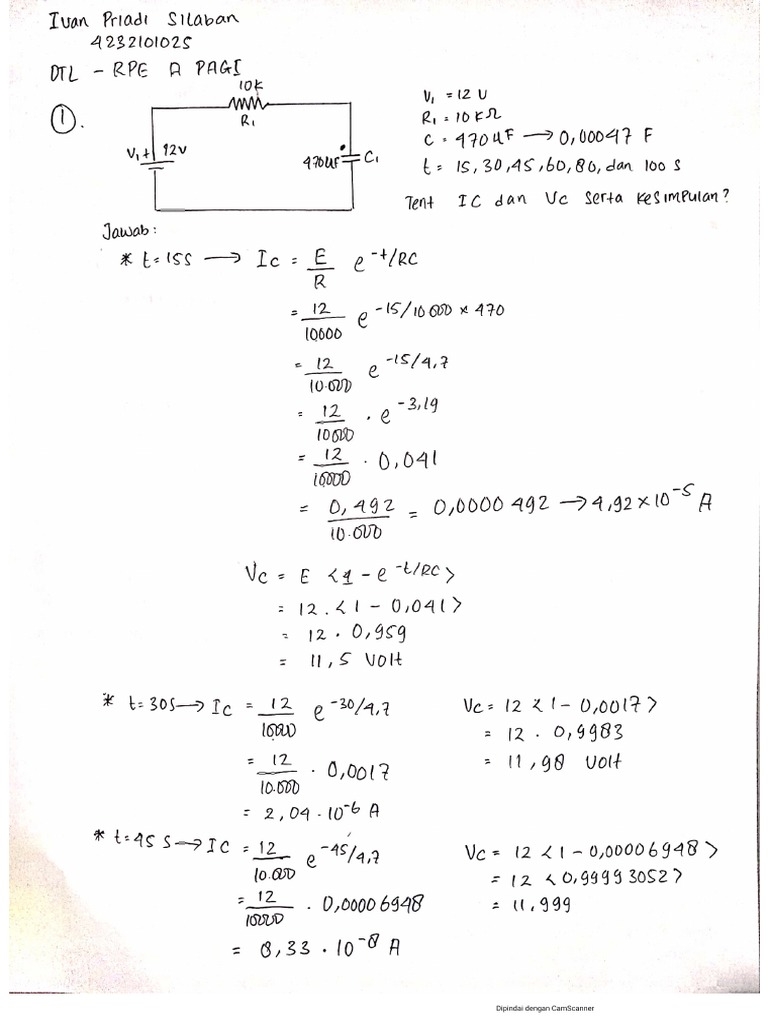 Ivan Priadi Silaban
4232101025
DTL - RPE A PAGI
1.
10K
R1
V1 + 12V
470uF C1
V1 = 12 V
R1 = 10 KΩ
C = 470 uF → 0,00047 F
t = 15, 30, 45, 60, 80, dan 100 S
Tent IC dan Vc serta kesimpulan?
Jawab:
* t = 15S → Ic = E/R e^-t/RC
= 12/10000 e^-15/10000 × 470
= 12/10.000 e^-15/4,7
= 12/10000 . e^-3,19
= 12/10000 . 0,041
= 0,492/10.000 = 0,0000492 → 4,92 × 10^-5 A
Vc = E <1 - e^-t/RC>
= 12 . <1 - 0,041>
= 12 . 0,959
= 11,5 Volt
* t = 30S → Ic = 12/10000 e^-30/4,7
= 12/10.000 . 0,0017
= 2,04 . 10^-6 A
Vc = 12 <1 - 0,0017>
= 12 . 0,9983
= 11,98 Volt
* t = 45 S → Ic = 12/10.000 e^-45/4,7
= 12/10000 . 0,00006948
= 8,33 . 10^-8 A
Vc = 12 <1 - 0,00006948>
= 12 <0,99993052>
= 11,999
Dipindai dengan CamScanner